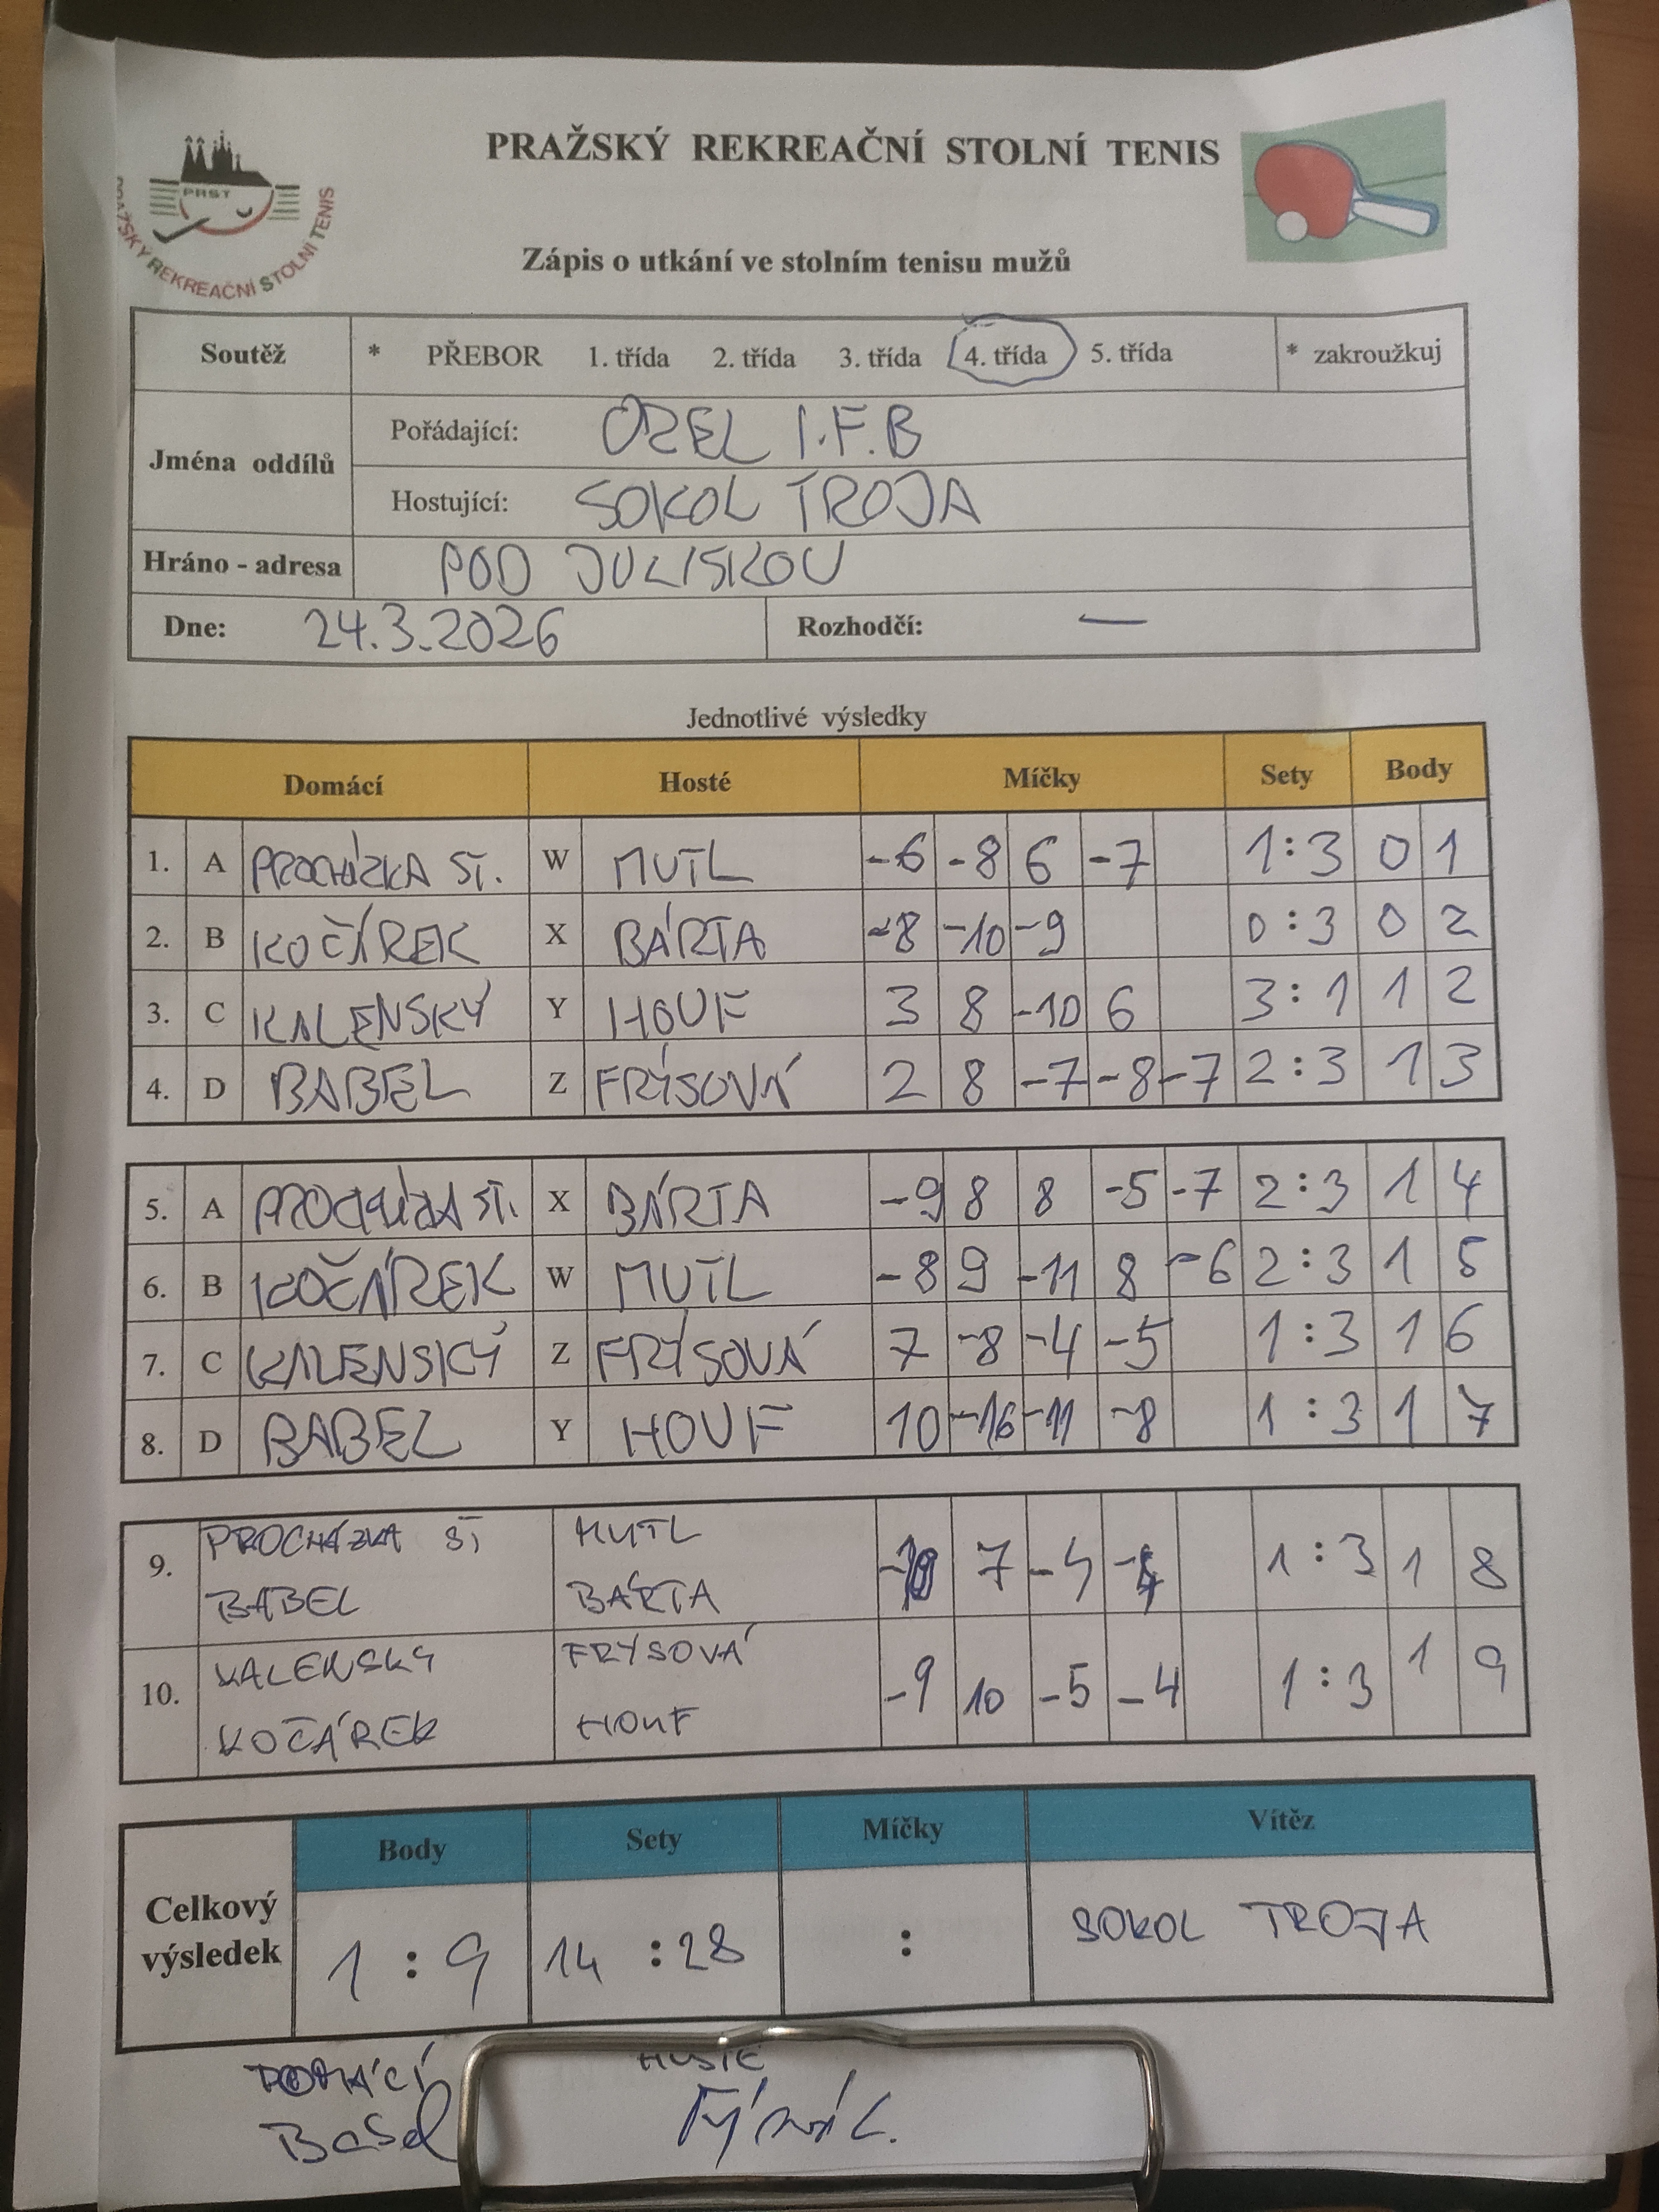 PRAŽSKÝ REKREAČNÍ STOLNÍ TENIS
PRST
PRAŽSKÝ REKREAČNÍ STOLNÍ TENIS
Zápis o utkání ve stolním tenisu mužů
Soutěž * PŘEBOR 1. třída 2. třída 3. třída 4. třída 5. třída * zakroužkuj
Jména oddílů
Pořádající: OZEL I.F.B
Hostující: SOKOL TROJA
Hráno - adresa POD JULISKOU
Dne: 24.3.2026 Rozhodčí: —
Jednotlivé výsledky
Domácí Hosté Míčky Sety Body
1. A PROCHÁZKA ST. W MUTL -6 -8 6 -7 1:3 0 1
2. B KOČÁREK X BÁRTA -8 -10 -9 0:3 0 2
3. C KALENSKÝ Y HOUF 3 8 -10 6 3:1 1 2
4. D BABEL Z FRÝSOVÁ 2 8 -7 -8 -7 2:3 1 3
5. A PROCHÁZKA ST. X BÁRTA -9 8 8 -5 -7 2:3 1 4
6. B KOČÁREK W MUTL -8 9 -11 8 -6 2:3 1 5
7. C KALENSKÝ Z FRÝSOVÁ 7 -8 -4 -5 1:3 1 6
8. D BABEL Y HOUF 10 -16 -11 -8 1:3 1 7
9. PROCHÁZKA ST MUTL 7 1:3 1 8
BABEL BÁRTA
10. KALENSKY FRÝSOVÁ -9 10 -5 -4 1:3 1 9
KOČÁREK HOUF
Body Sety Míčky Vítěz
Celkový výsledek 1 : 9 14 : 28 : SOKOL TROJA
DOMÁCÍ HOSTÉ
Babel